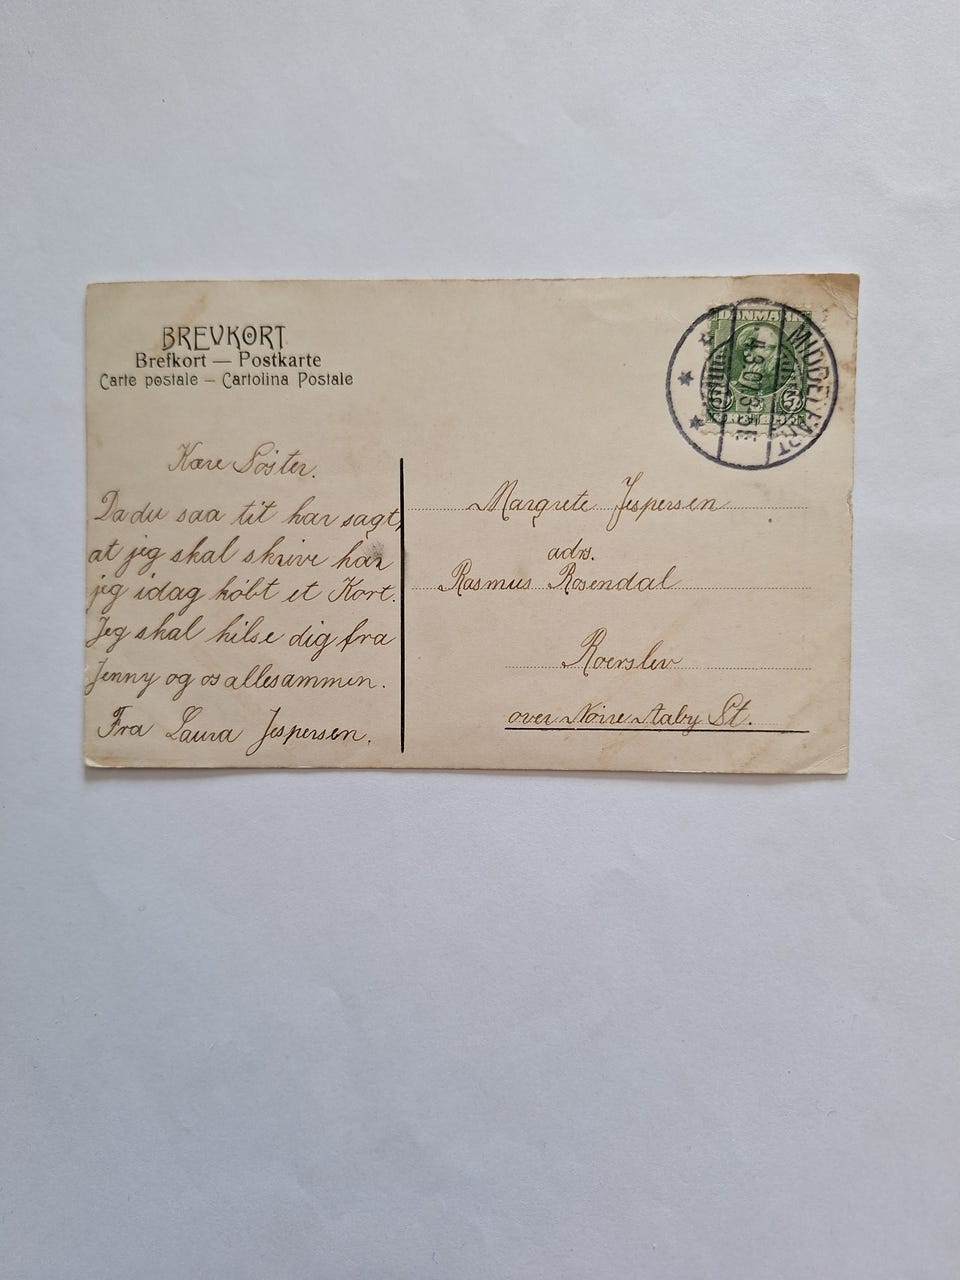 BREVKORT
Brefkort — Postkarte
Carte postale – Cartolina Postale
Kære Söster.
Da du saa tit har sagt,
at jeg skal skrive har
jeg idag kóbt et Kort.
Jeg skal hilse dig fra
Jenny og os allesammen.
Fra Laura Jespersen.
DANMARK
5
5
MIDDELFART
4.3.07.
Margrete Jespersen
adrs.
Rasmus Rosendal
Roerslev
over Nörre Aaby St.